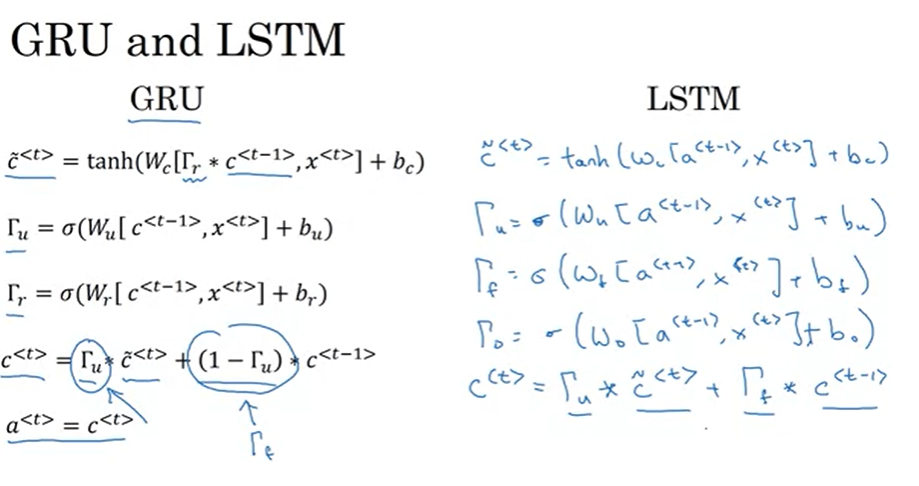 GRU and LSTM
GRU
c̃^<t> = tanh(W_c[Γ_r * c^<t−1>, x^<t>] + b_c)
Γ_u = σ(W_u[ c^<t−1>, x^<t>] + b_u)
Γ_r = σ(W_r[ c^<t−1>, x^<t>] + b_r)
c^<t> = Γ_u * c̃^<t> + (1 − Γ_u) * c^<t−1>
a^<t> = c^<t>
Γ_f
LSTM
c̃^<t> = tanh(W_c[a^<t-1>, x^<t>] + b_c)
Γ_u = σ(W_u[a^<t-1>, x^<t>] + b_u)
Γ_f = σ(W_f[a^<t-1>, x^<t>] + b_f)
Γ_o = σ(W_o[a^<t-1>, x^<t>] + b_o)
c^<t> = Γ_u * c̃^<t> + Γ_f * c^<t-1>